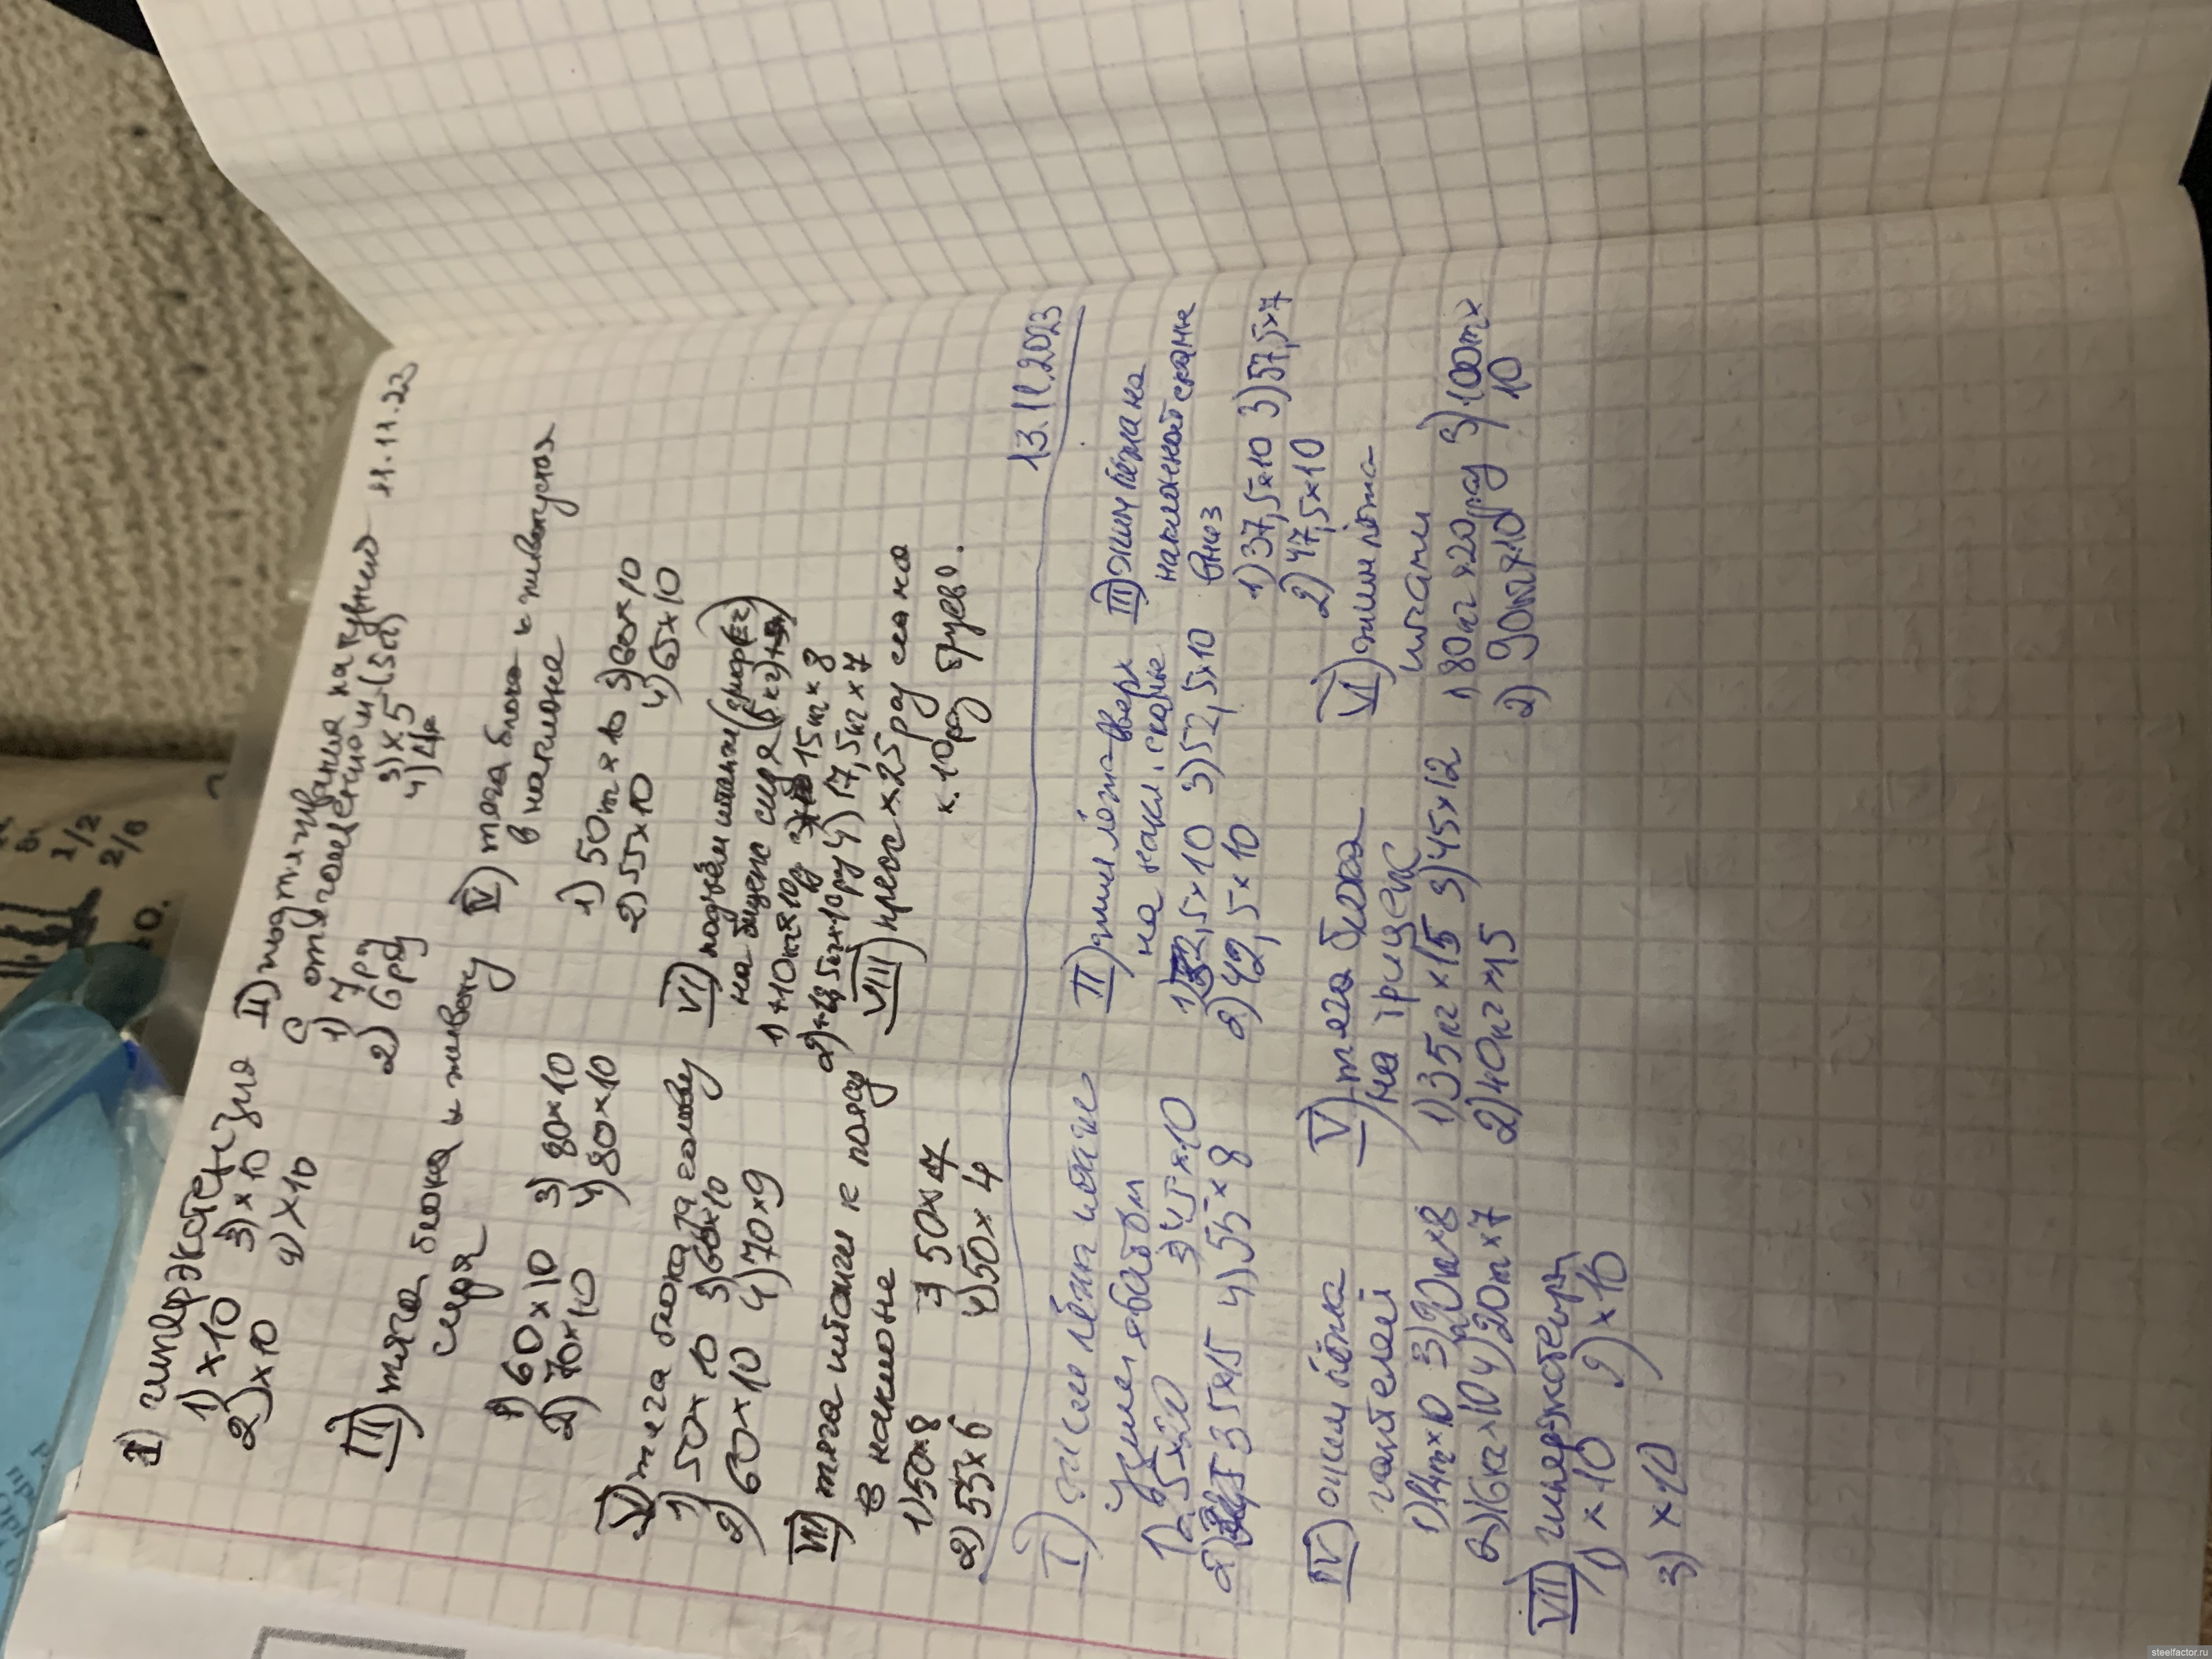 11.11.23
I) гиперэкстензия
1) x10 3) x10
2) x10 4) x10
II) подтягивания на турнике
с отягощением (5кг)
1) 7 раз 3) x5
2) 6 раз 4)
III) тяга блока к животу
сидя
1) 60x10 3) 80x10
2) 70x10 4) 80x10
IV) тяга блока к животу стоя
в наклоне
1) 50кг x 10 3) 60x10
2) 55x10 4) 65x10
V) тяга блока за голову
1) 50x10 3) 60x10
2) 60x10 4) 70x9
VI) подъём штанги
на бицепс сидя
1) +10кг x 10р 3) 15кг x 8
10 раз 4) 17,5кг x 7
VII) тяга штанги к поясу
в наклоне
1) 50x8 3) 50x7
2) 55x6 4) 50x4
VIII) пресс x 25 раз на
10 раз брусья.
13.11.2023
I) жим лёжа
узким хватом
1) 25x20 3) 45x10
2) 35x15 4) 55x8
II) жим лёжа вверх
на накл. скамье
1) 2,5x10 3) 52,5x10
2) 42,5x10
III) жим лёжа на
наклонной скамье
вниз
1) 37,5x10 3) 57,5x7
2) 47,5x10
IV) жим лёжа
гантелей
1) 14кг x 10 3) 20кг x 8
2) 16кг x 10 4) 20кг x 7
V) тяга блока
на трицепс
1) 35кг x 15 3) 45x12
2) 40кг x 15
VI) жим лёжа
штанги
1) 80кг x 20 раз 3) 100кг x
2) 90кг x 10 10
VII) гиперэкстензия
1) x10 2) x10
3) x10
steelfactor.ru